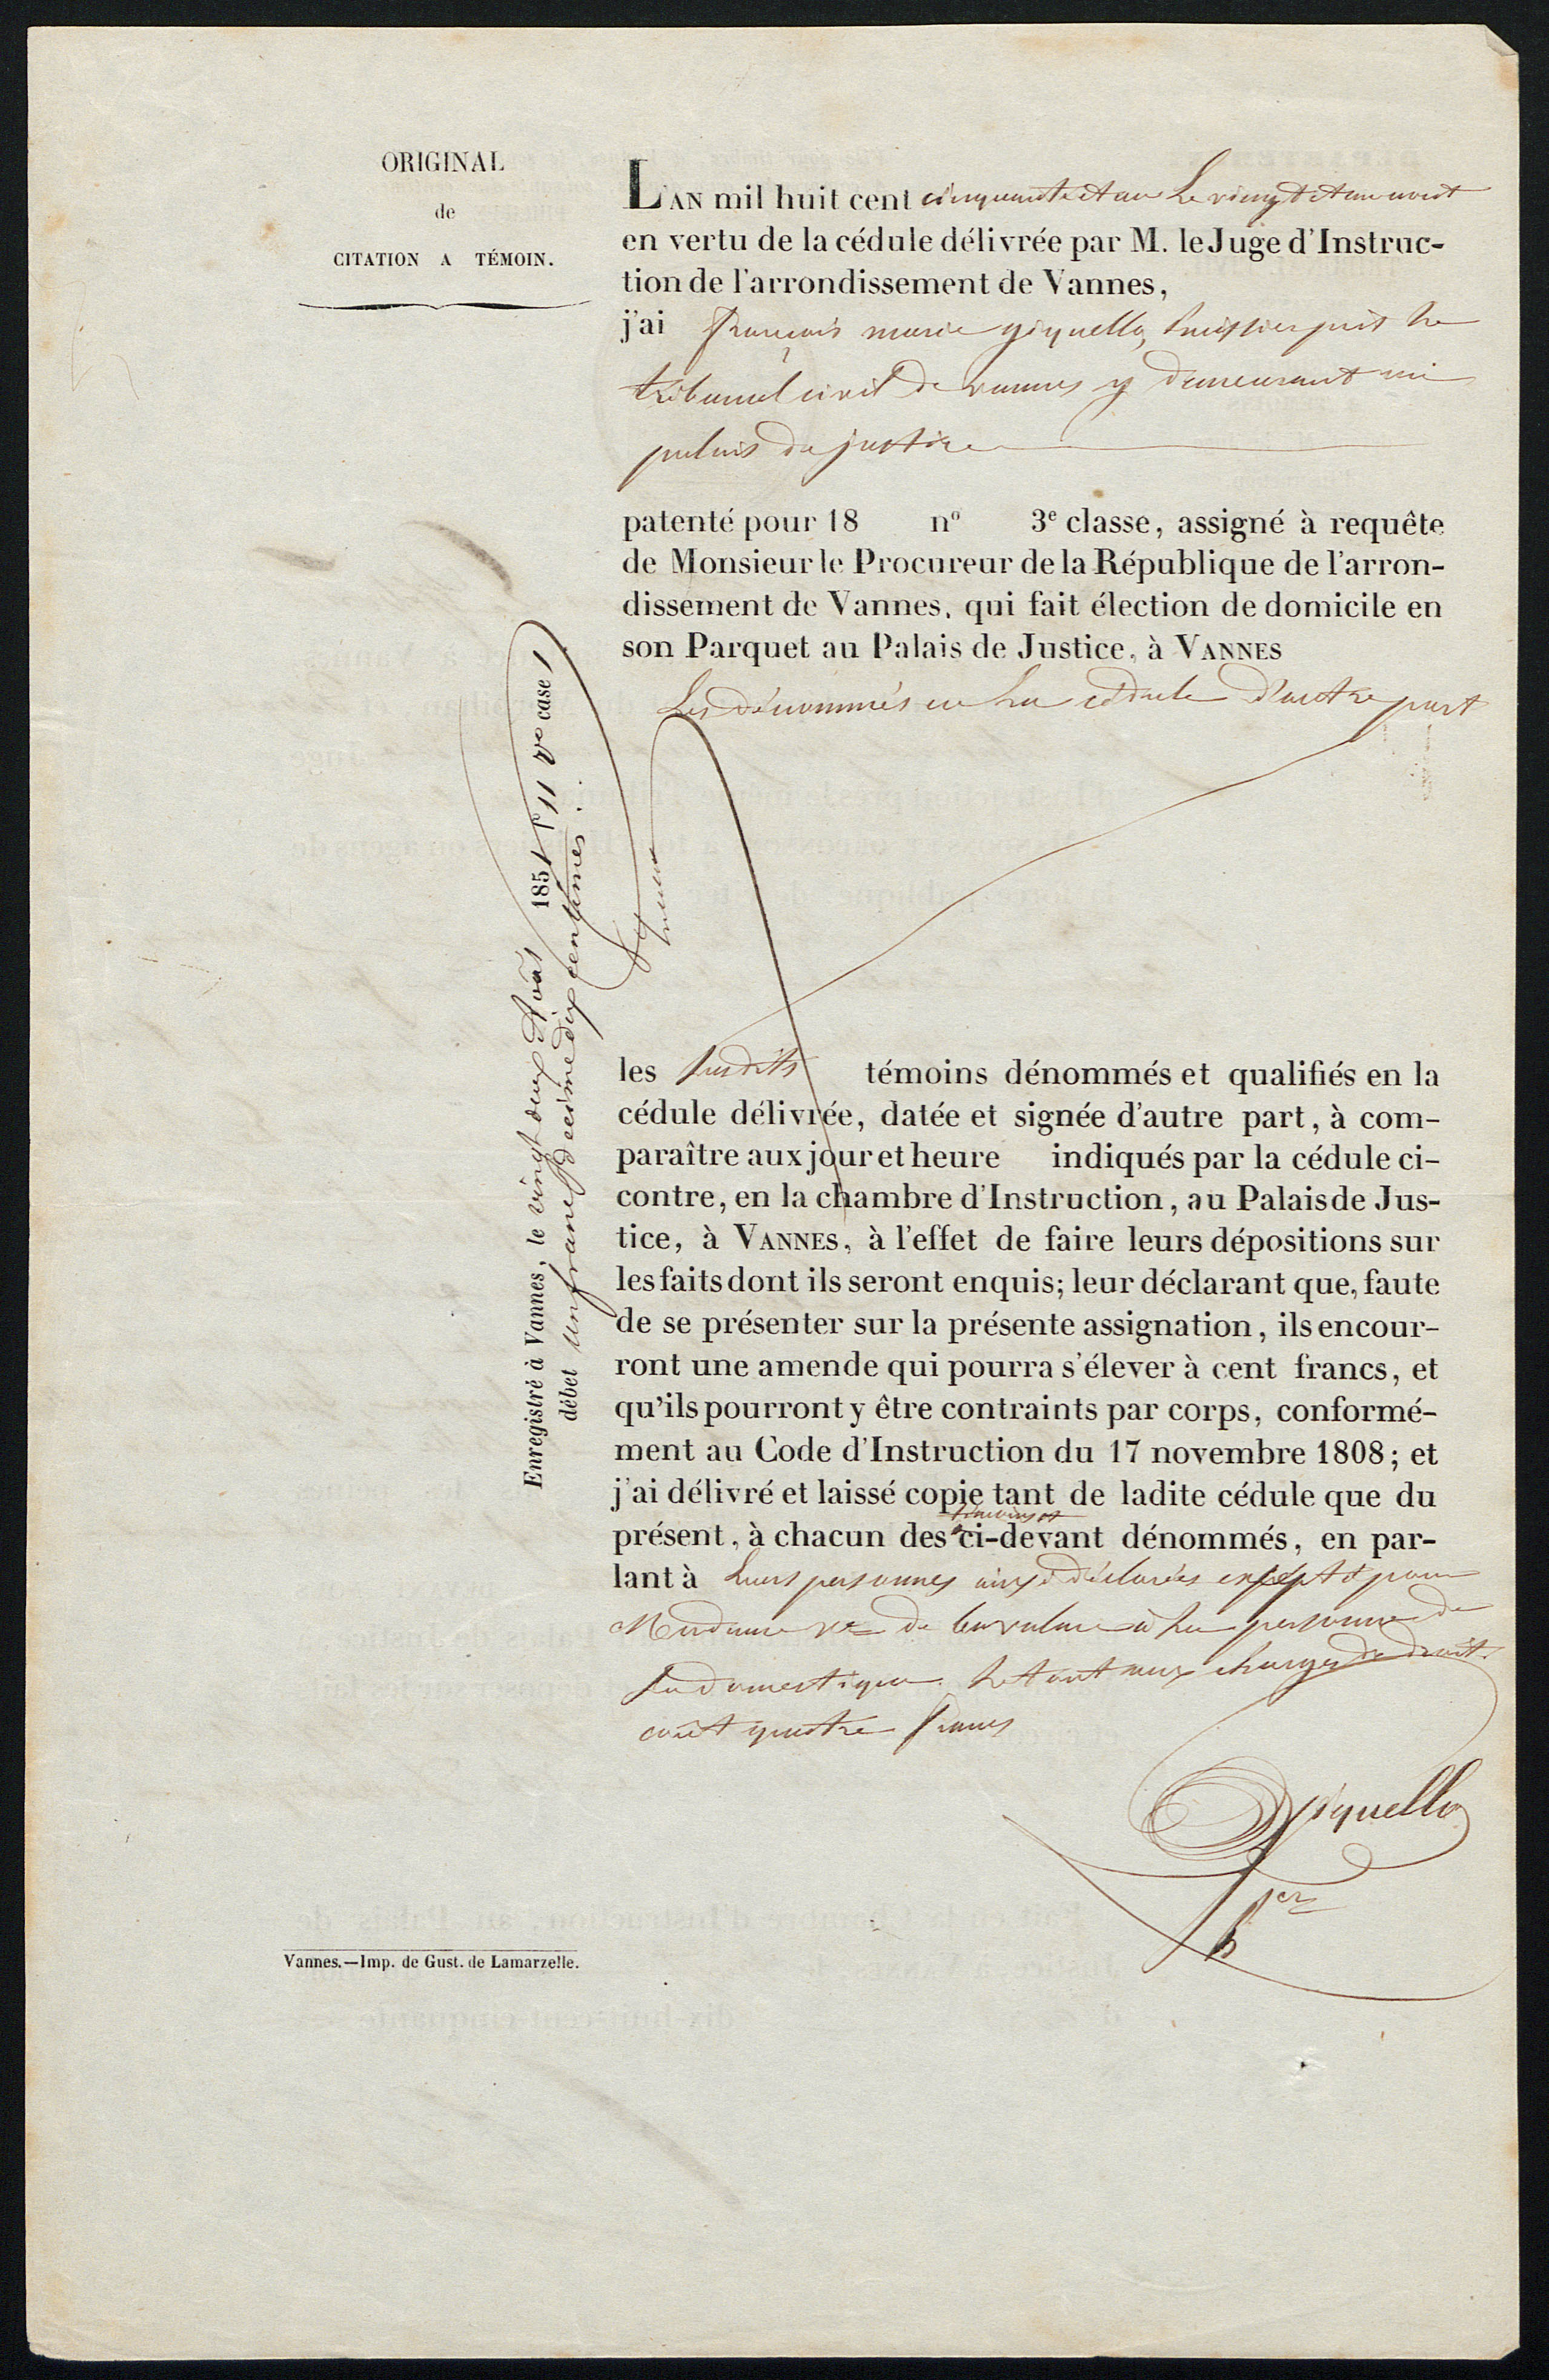 ORIGINAL
de
CITATION A TÉMOIN.
L'AN mil huit cent cinquante et un Le vingt et un aout
en vertu de la cédule délivrée par M. le Juge d'Instruc-
tion de l'arrondissement de Vannes,
j'ai françois marie giquello, huissier près le
tribunal civil de vannes y demeurant au
palais de justice
patenté pour 18 nº 3e classe, assigné à requête
de Monsieur le Procureur de la République de l'arron-
dissement de Vannes, qui fait élection de domicile en
son Parquet au Palais de Justice, à VANNES
Les dénommés en la cédule d'autre part
les susdits témoins dénommés et qualifiés en la
cédule délivrée, datée et signée d'autre part, à com-
paraître aux jour et heure indiqués par la cédule ci-
contre, en la chambre d'Instruction, au Palais de Jus-
tice, à VANNES, à l'effet de faire leurs dépositions sur
les faits dont ils seront enquis; leur déclarant que, faute
de se présenter sur la présente assignation, ils encour-
ront une amende qui pourra s'élever à cent francs, et
qu'ils pourront y être contraints par corps, conformé-
ment au Code d'Instruction du 17 novembre 1808; et
j'ai délivré et laissé copie tant de ladite cédule que du
témoins
présent, à chacun des ci-devant dénommés, en par-
lant à leurs personnes ainsi déclarées excepté pour
Madame ve de à la personne de
sa domestique. Le tout aux charges de droit.
coût quatre francs
giquello
her
Enregistré à Vannes, le vingt deux Août 1851 fo 11 Vo case 1
débet un franc decime dix centimes.
Vannes.—Imp. de Gust. de Lamarzelle.